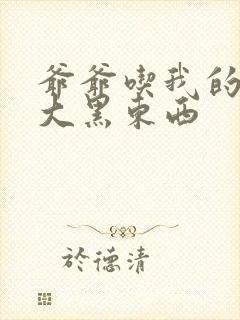 爷爷喫我的
大黑东西
於德清